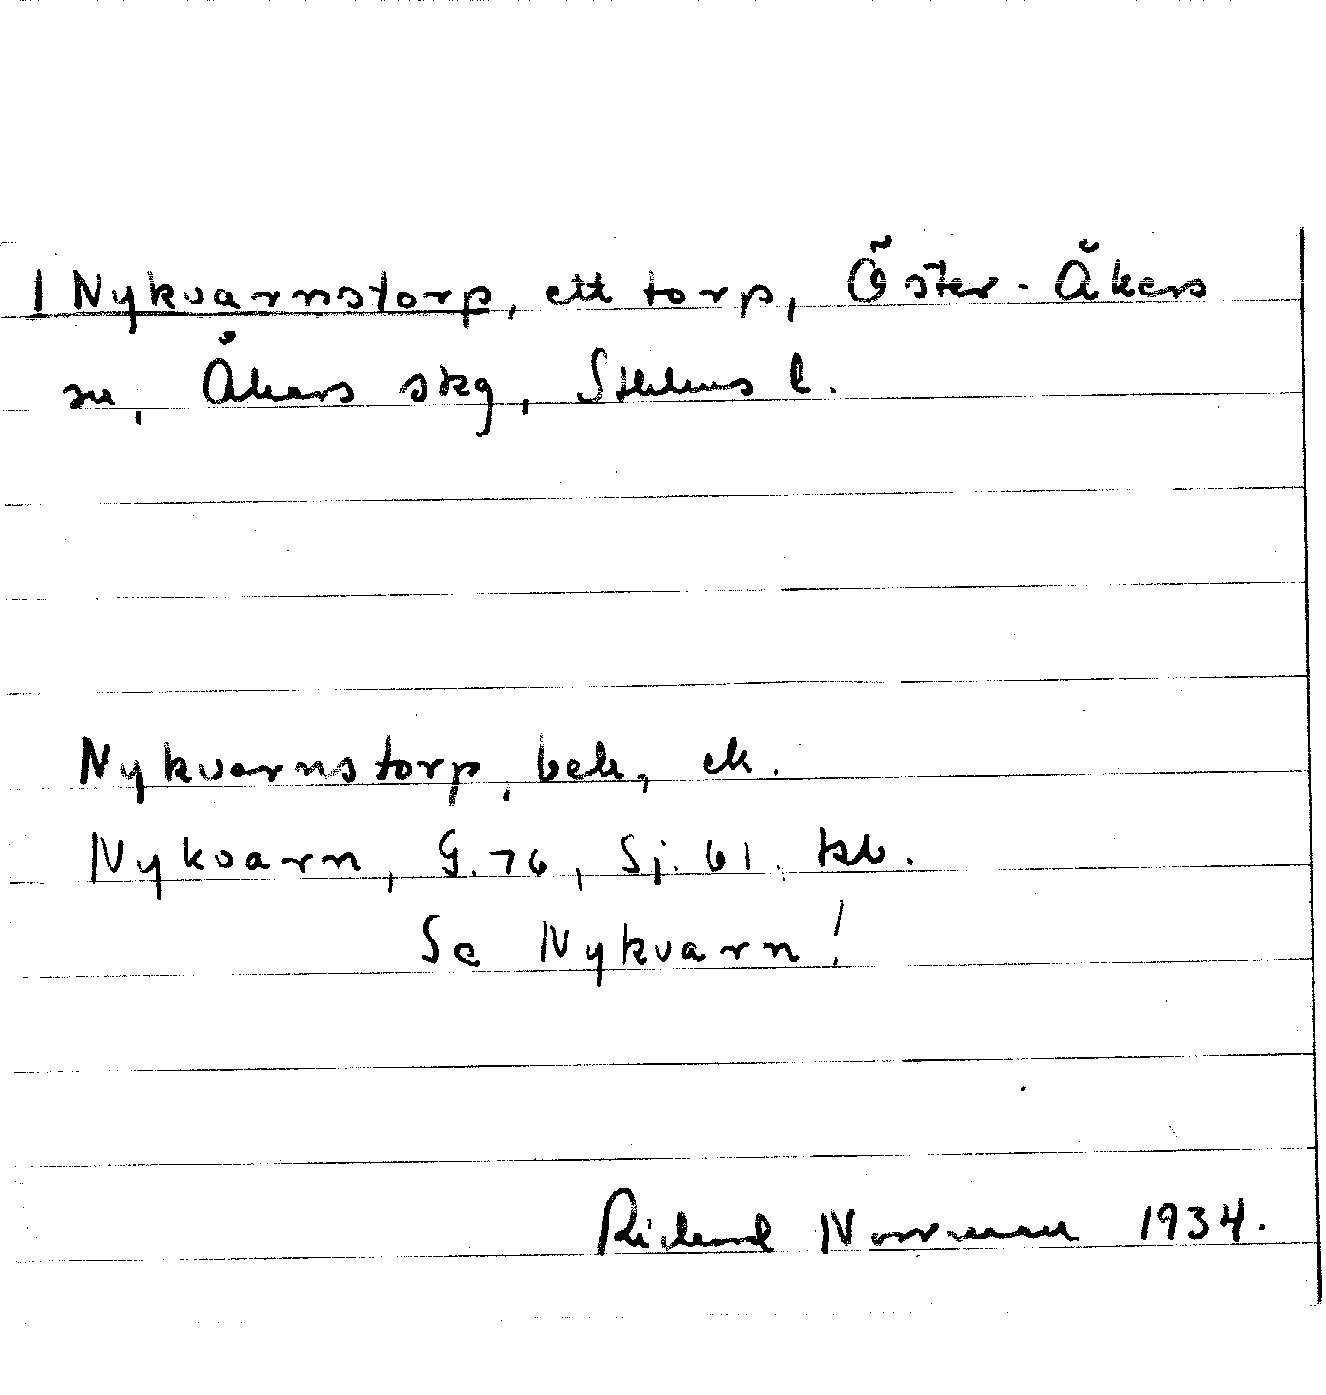 1 Nykvarnstorp, ett torp, Öster-Åkers
sn, Åkers skg, Sthlms l.
Nykvarnstorp, bek, ek.
Nykvarn, G.76, Sj.61. kb.
Se Nykvarn!
Richard Norrman 1934.